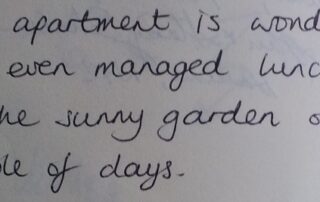 apartment is wond
even managed lunc
he sunny garden o
le of days.